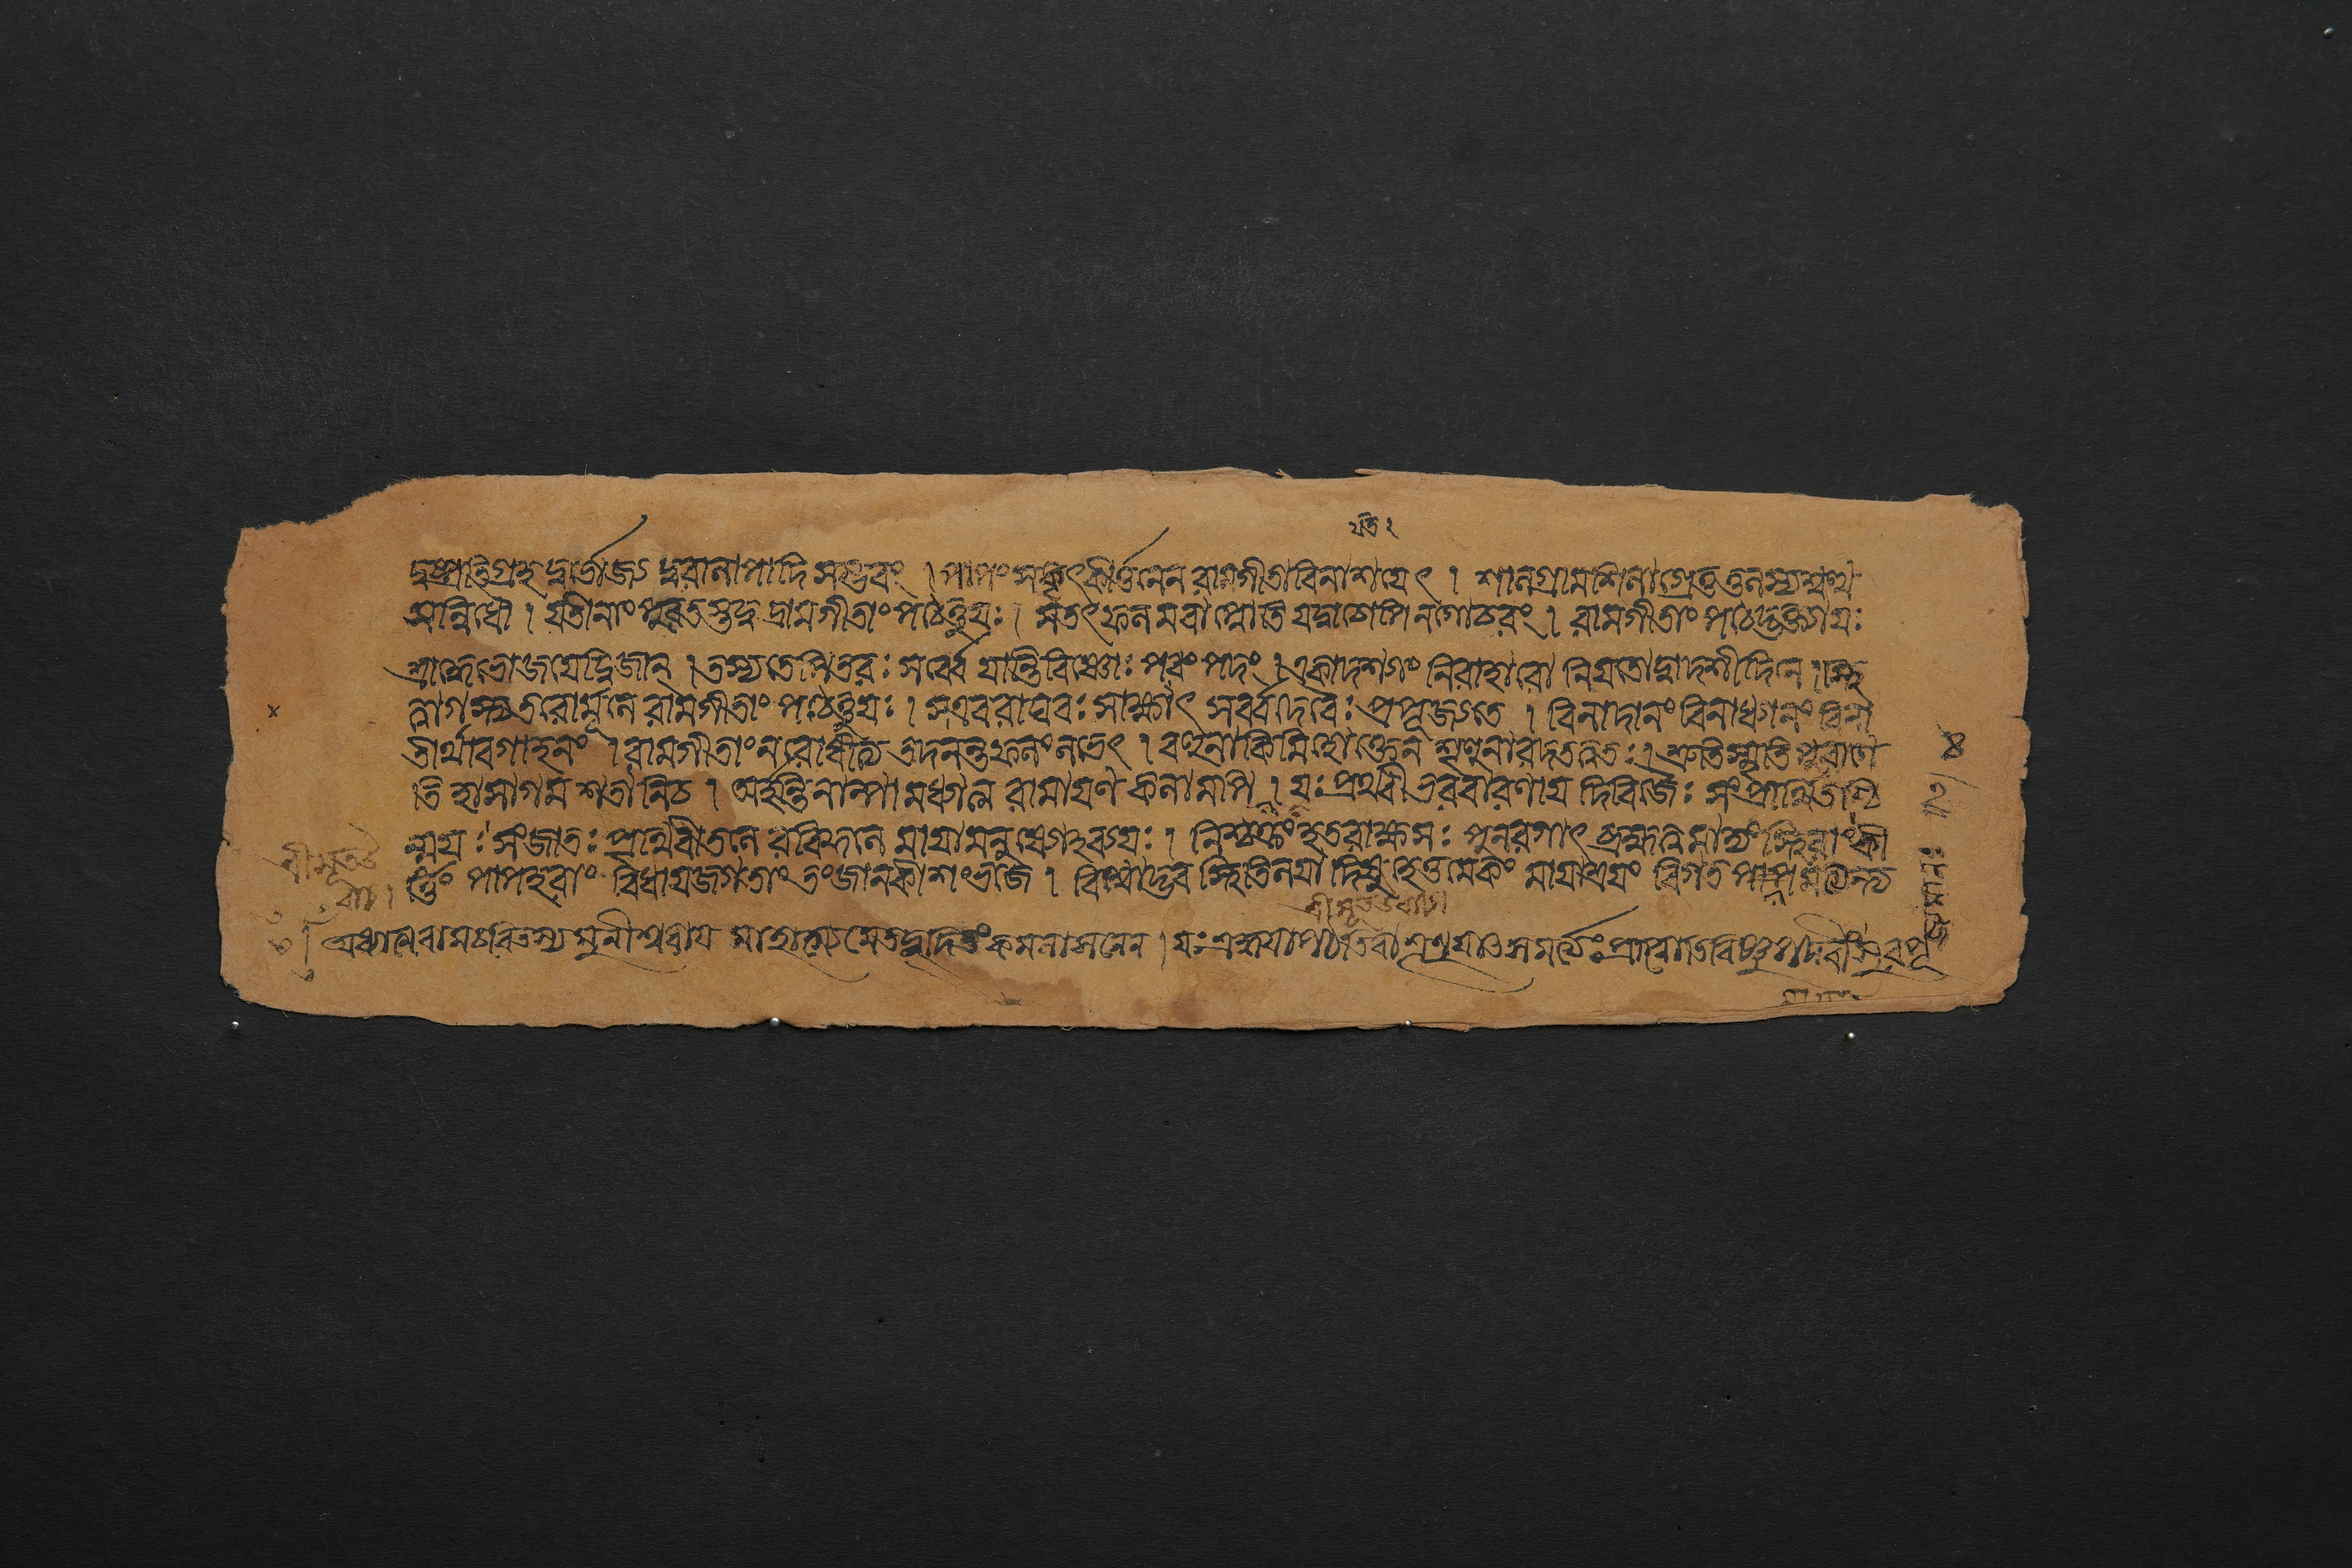 যতিঃ
দুষ্প্রতিগ্রহ দুর্ভোজ্য দুরালাপাদি সম্ভবং । পাপং সকৃৎকীর্ত্তনেন রামগীতা বিনাশয়েৎ । শালগ্রামশিলাগ্রেতু তুলস্যশ্বত্থ
সন্নিধৌ । যতীনাং পুরতস্তদ্বদ্রামগীতাং পঠেত্তুযঃ । সতৎফলমবাপ্নোতি যদ্বাচোপি নগোচরং । রামগীতাং পঠেদ্ভক্ত্যাযঃ
শ্রাদ্ধেভোজয়েদ্দ্বিজান্ । তস্যতেপিতরঃ সর্ব্বে যান্তিবিষ্ণোঃ পরং পদং । একাদশ্যাং নিরাহারো নিয়তোদ্বাদশীদিনে । স্থি
ত্বাগস্ত্যতরোর্মূলে রামগীতাং পঠেত্তুযঃ । সএবরাঘবঃ সাক্ষাৎ সর্ব্বদেবৈঃ প্রপূজ্যতে । বিনাদানং বিনাধ্যানং বিনা
তীর্থাবগাহনং । রামগীতাং নরোধীত্য তদনন্তফলং লভেৎ । বহুনাকিমিহোক্তেন শৃণুনারদতত্ত্বতঃ । শ্রুতিস্মৃতি পুরাণে
তি হাসাগম শতানিচ । অর্হন্তি নাল্পামধ্যাত্ম রামায়ণ কলামপি । যঃ পৃথিবীভরবারণায় দিবিজৈঃ সংপ্রার্থিতশ্চি
ন্ময়ঃ সংজাতঃ পৃথিবীতলে রবিকুলে মায়ামনুষ্যোহব্যয়ঃ । নিশ্চক্রং হতরাক্ষসঃ পুনরগাৎ ব্রহ্মত্বমাদ্যং স্থিরাং কী
র্ত্তিং পাপহরাং বিধায়জগতাং তংজানকীশং ভজে । বিশ্বোদ্ভব স্থিতিলয়াদিষু হেতুমেকং মায়াশ্রয়ং বিগত মায়মচিন্ত্য
শ্রীমূর্ত্তি
অধ্যাত্মরামচরিতস্য মুনীশ্বরায় মাহাত্ম্যমেতদুদিতং কমলাসনেন । যঃ শ্রদ্ধয়া পঠতিবা শৃণুয়াৎ সমর্ত্যঃ প্রাপ্নোতি বিষ্ণুপদবীং সুরপূ
৪
২